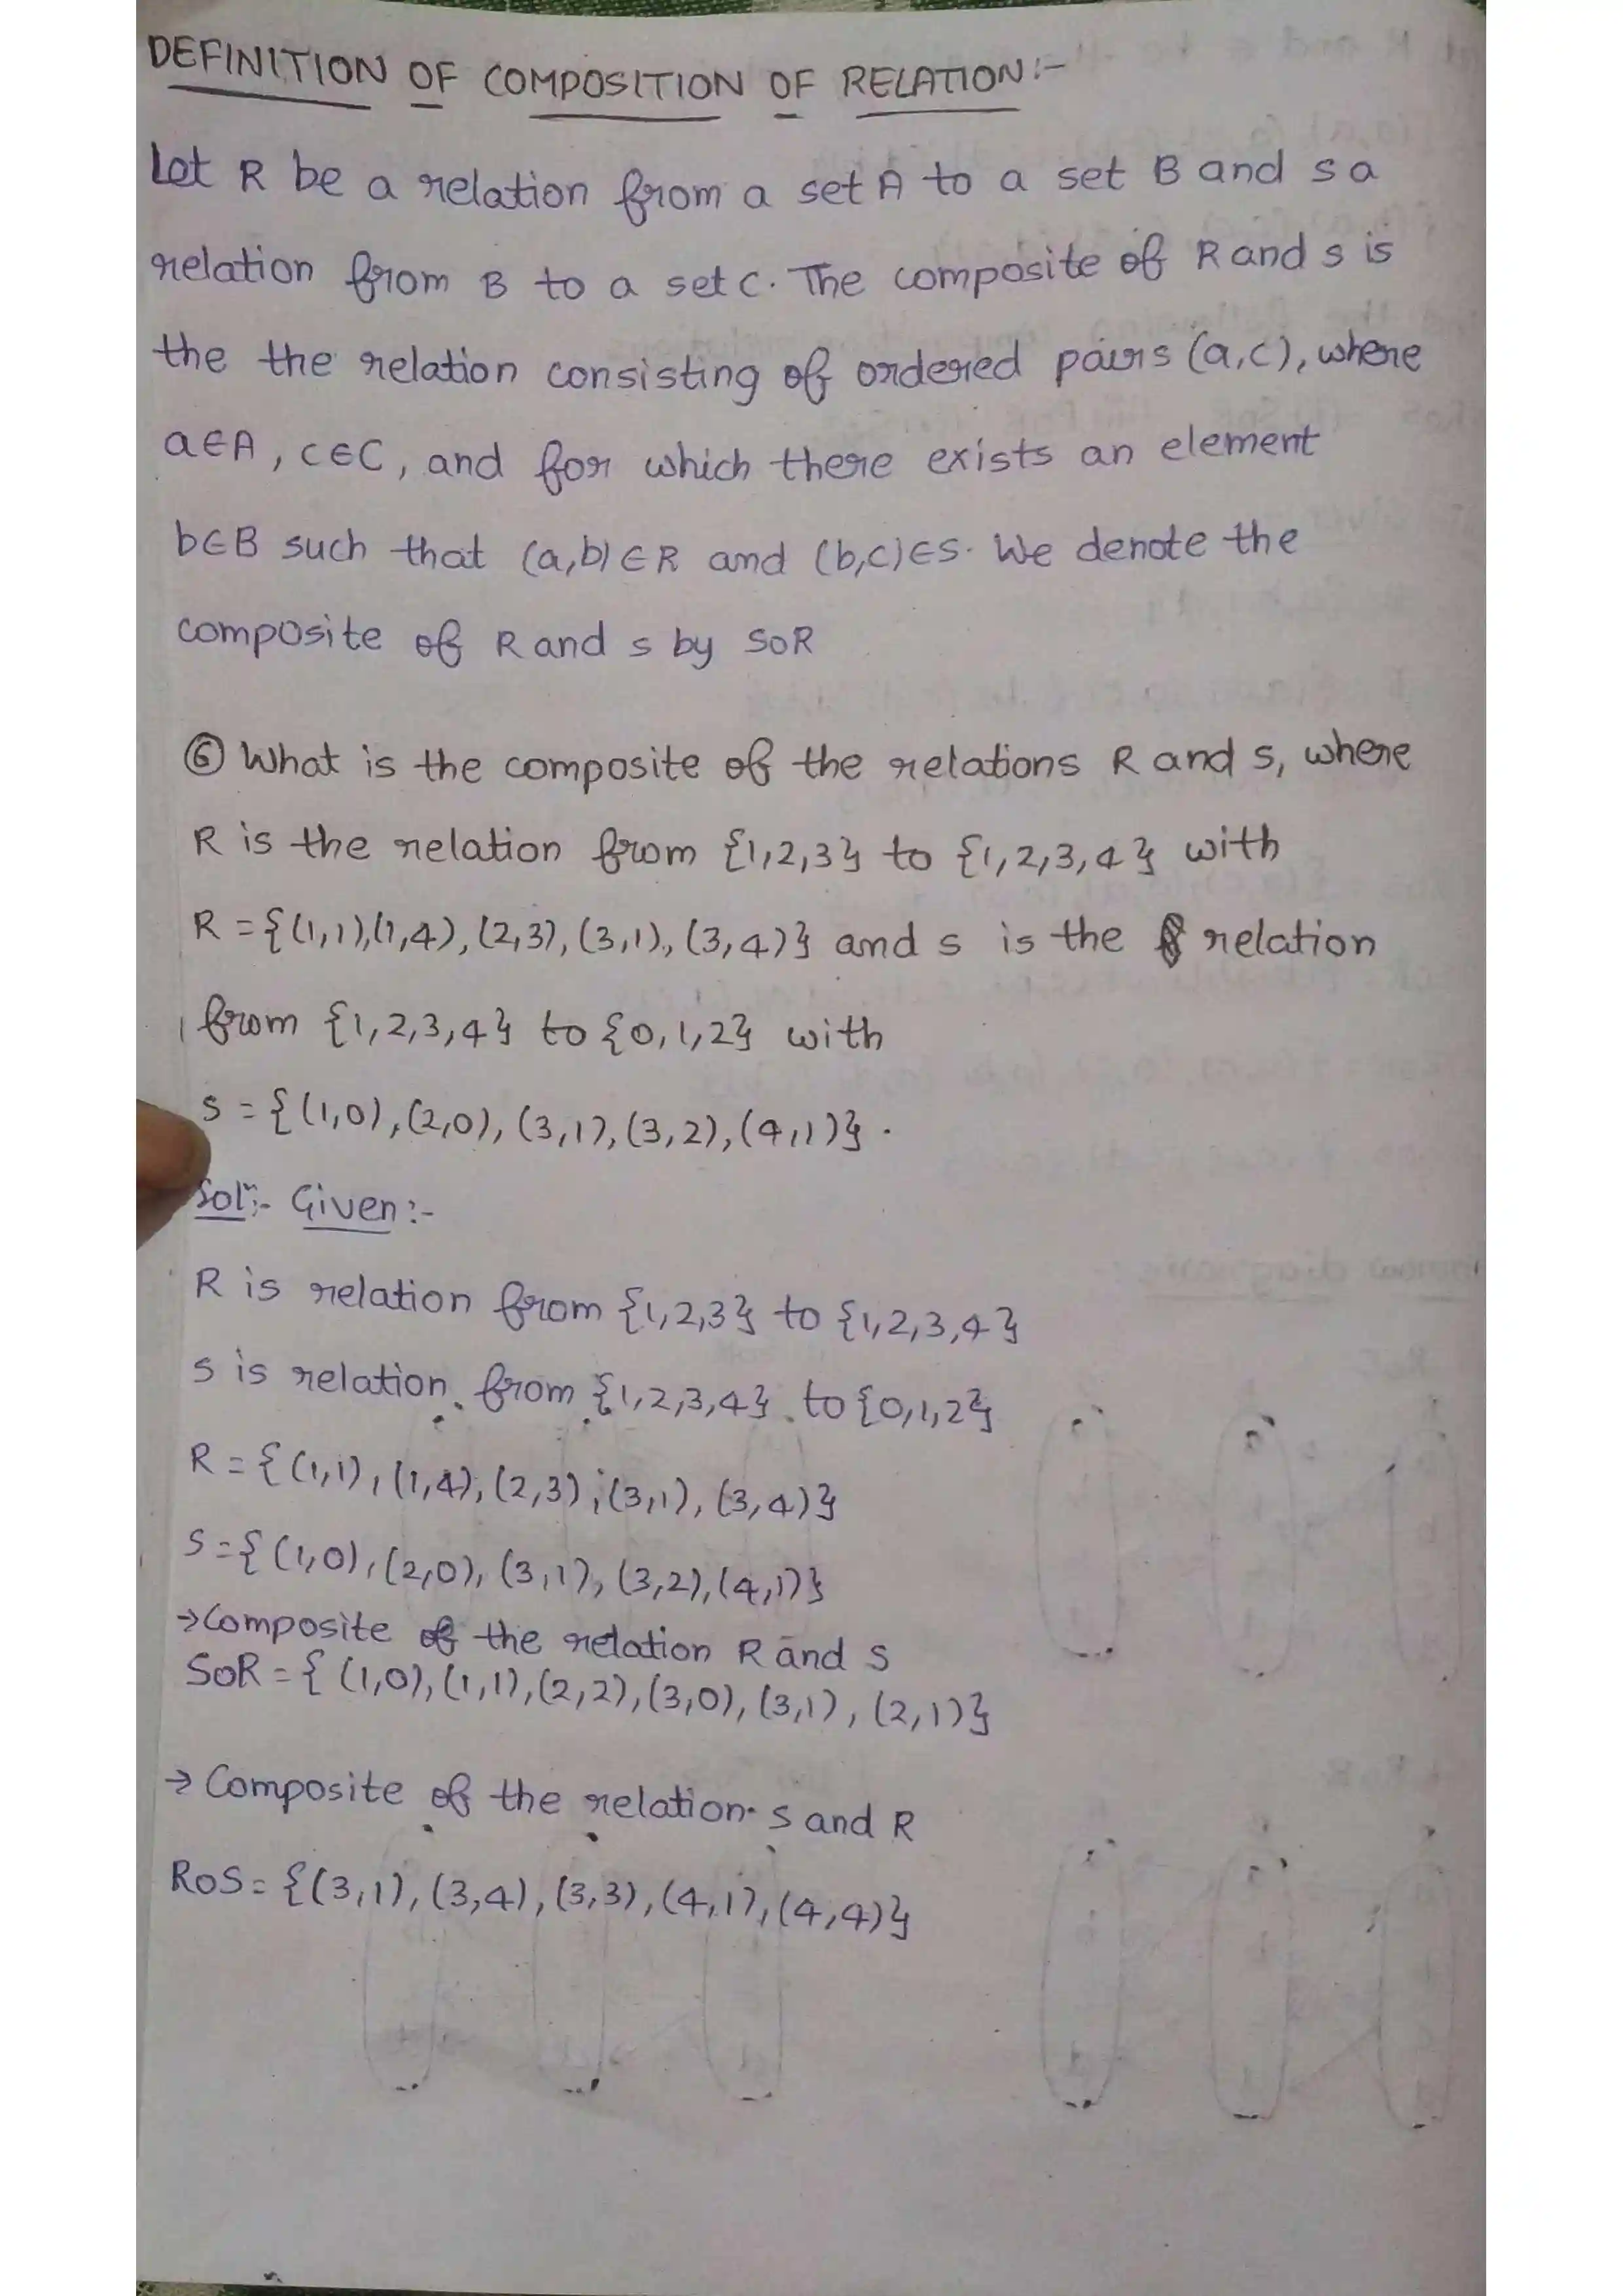 DEFINITION OF COMPOSITION OF RELATION:-
Let R be a relation from a set A to a set B and s a
relation from B to a set C. The composite of R and s is
the the relation consisting of ordered pairs (a,c), where
a∈A, c∈C, and for which there exists an element
b∈B such that (a,b)∈R and (b,c)∈S. We denote the
composite of R and s by SoR
⑥ What is the composite of the relations R and s, where
R is the relation from {1,2,3} to {1,2,3,4} with
R = {(1,1),(1,4),(2,3),(3,1),(3,4)} and s is the relation
from {1,2,3,4} to {0,1,2} with
S = {(1,0),(2,0),(3,1),(3,2),(4,1)}.
Solⁿ:- Given:-
R is relation from {1,2,3} to {1,2,3,4}
s is relation from {1,2,3,4} to {0,1,2}
R = {(1,1),(1,4),(2,3),(3,1),(3,4)}
S = {(1,0),(2,0),(3,1),(3,2),(4,1)}
→ Composite of the relation R and S
SoR = {(1,0),(1,1),(2,2),(3,0),(3,1),(2,1)}
→ Composite of the relation s and R
RoS = {(3,1),(3,4),(3,3),(4,1),(4,4)}